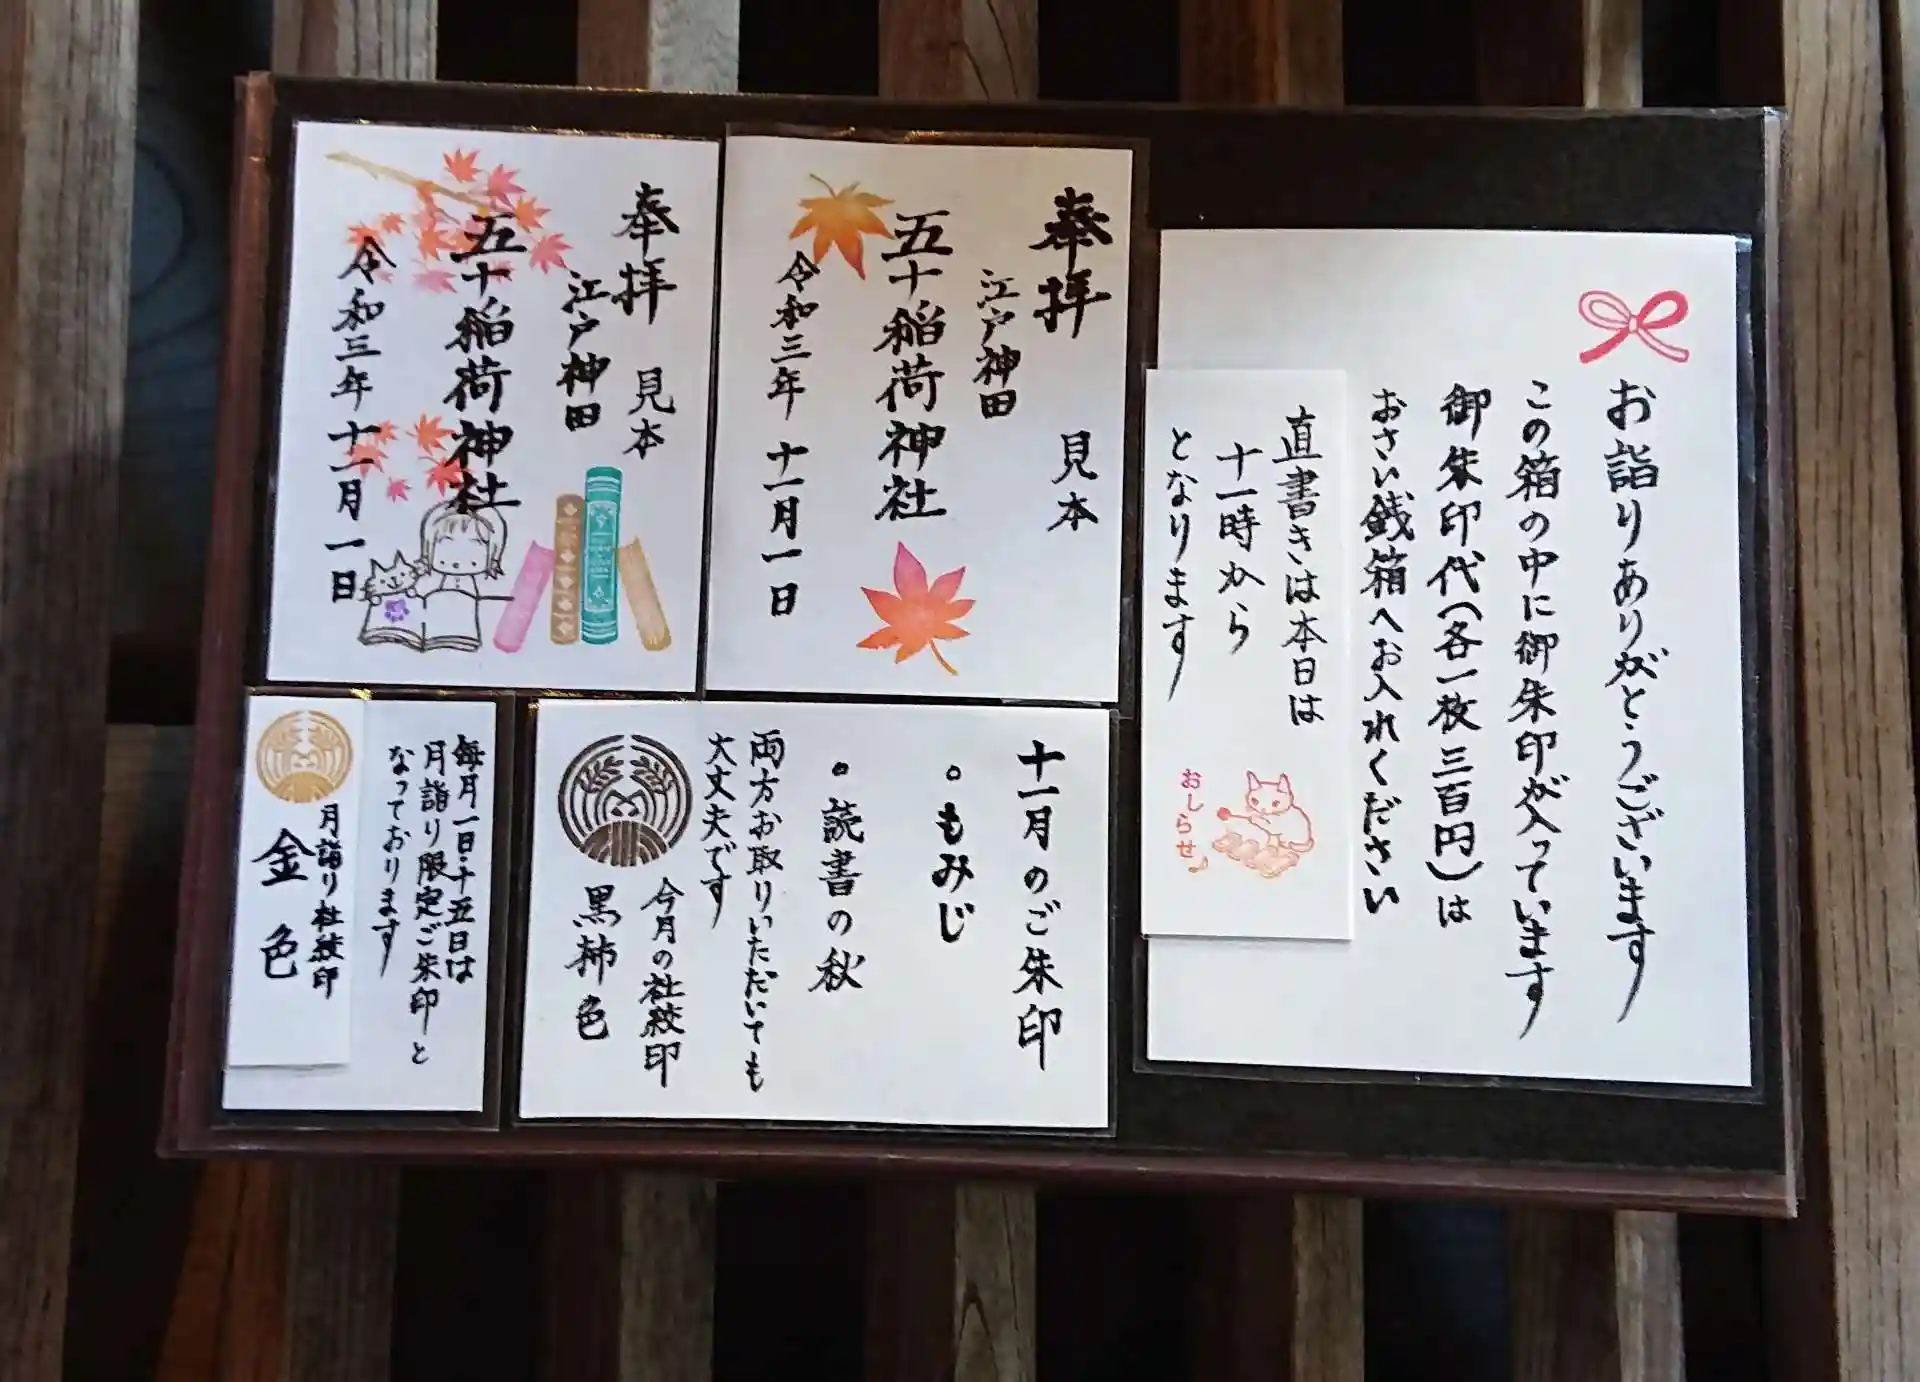 お詣りありがとうございます
この箱の中に御朱印が入っています
御朱印代(各一枚三百円)は
おさい銭箱へお入れください
直書きは本日は
十一時から
となります
おしらせ♪
奉拝 見本
江戸神田
五十稲荷神社
令和三年 十一月一日
奉拝 見本
江戸神田
五十稲荷神社
令和三年 十一月一日
十一月のご朱印
。もみじ
。読書の秋
両方お取りいただいても
大丈夫です
今月の社紋印
黒柿色
毎月一日・十五日は
月詣り限定ご朱印と
なっております
月詣り社紋印
金色